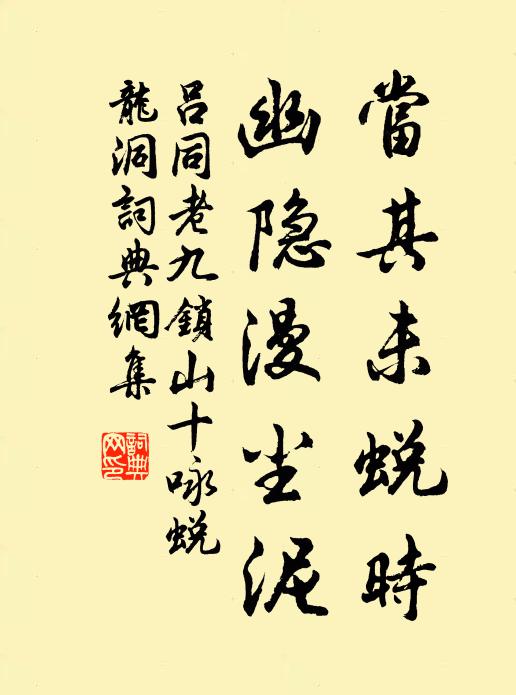 當其未蜕時
幽隐漫尘泥
吕同老九鎖山十咏蜕
龍洞詞典網集
詞典
网印